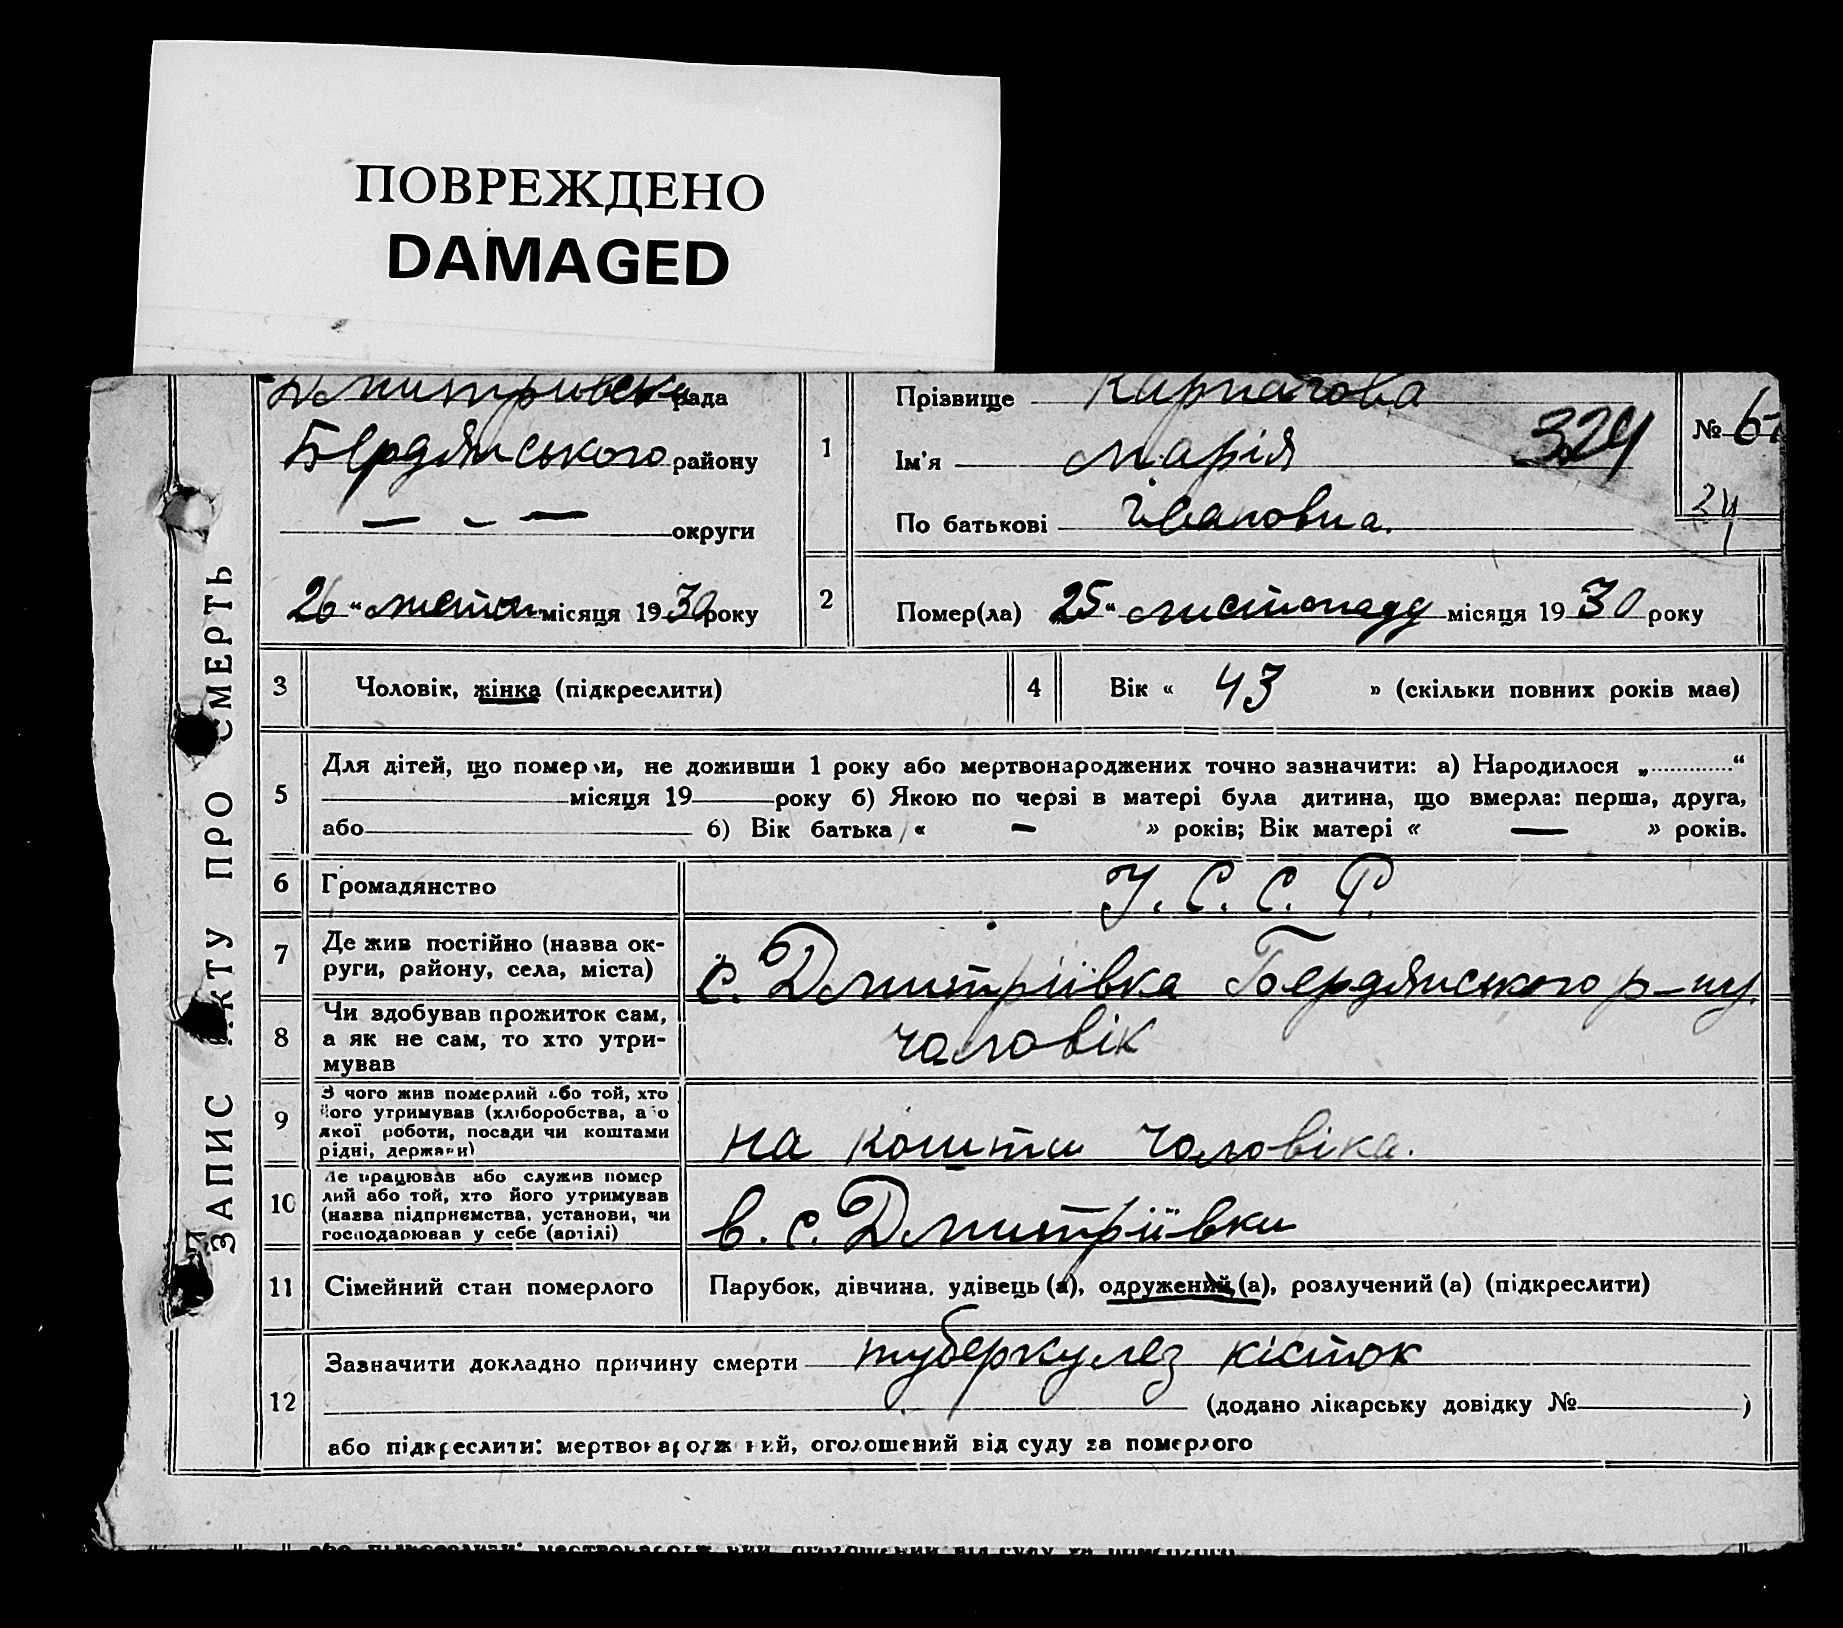 ПОВРЕЖДЕНО
DAMAGED
ЗАПИС АКТУ ПРО СМЕРТЬ
рада
Бердянського району
— - — округи
26 " листоп. місяця 1930 року
1
Прізвище
Ім'я Марія
По батькові Івановна.
324
№
24
2
Помер(ла) 25 " листопаду місяця 1930 року
3 Чоловік, жінка (підкреслити)
4 Вік « 43 » (скільки повних років має)
5
Для дітей, що померли, не доживши 1 року або мертвонароджених точно зазначити: а) Народилося „ “
місяця 19 року б) Якою по черзі в матері була дитина, що вмерла: перша, друга,
або б) Вік батька « — » років; Вік матері « — » років.
6 Громадянство У. С. С. Р.
7
Де жив постійно (назва ок-
руги, району, села, міста)
с. Дмитріївка Бердянського р-ну.
8
Чи здобував прожиток сам,
а як не сам, то хто утри-
мував
чоловік
9
З чого жив померлий або той, хто
його утримував (хліборобства, або
якої роботи, посади чи коштами
рідні, держави)
на кошти чоловіка.
10
Де працював або служив помер
лий або той, хто його утримував
(назва підприємства, установи, чи
господарював у себе (артілі)
в. с. Дмитріївки
11 Сімейний стан померлого
Парубок, дівчина, удівець (а), одружений (а), розлучений (а) (підкреслити)
12
Зазначити докладно причину смерти туберкулез кісток
(додано лікарську довідку № )
або підкреслити: мертвонароджений, оголошений від суду за померлого